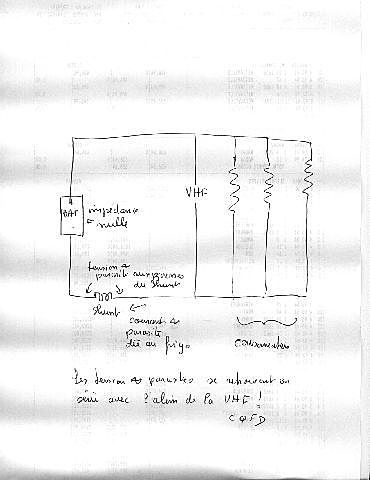 VHF
BAT
impédance
nulle
tension
parasite aux bornes
du shunt
shunt
courant
parasite
dû au frigo
consommateurs
Les tensions parasites se retrouvent en
série avec l'alim de la VHF !
CQFD